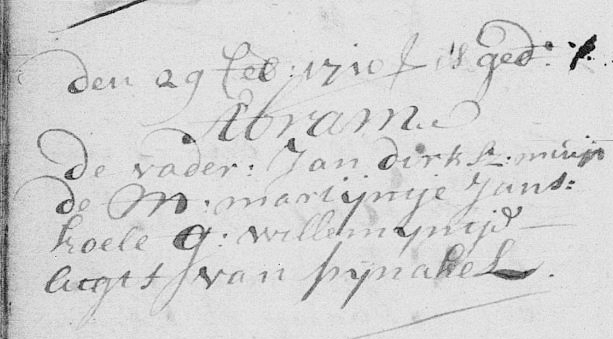 den 29 feb: 1710 is ged:
Abram
de vader: Jan dirks:
de M: martijntje Jans:
koele G: willemijntje
lugt van pijnakel.